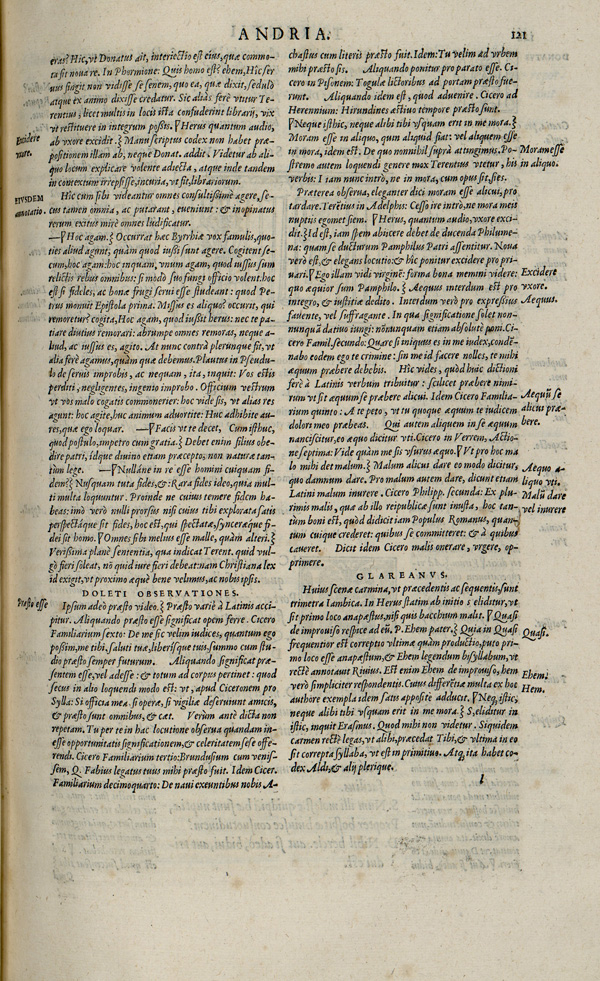 ANDRIA.
121
eras? Hic, vt Donatus ait, interiectio est eius, quæ commo-
ta sit noua re. In Phormione: Quis homo est? ehem, Hic ser
uus fingit non vidisse se senem, quo ea, quæ dixit, sedulo
atque ex animo dixisse credatur. Sic aliàs ferè vtitur Te-
rentius, licet multis in locis ista confuderint librarij, vix
vt restituere in integrum possis. Herus quantum audio,
ab vxore excidit. Manuscriptus codex non habet præ-
positionem illam ab, neque Donat. addit. Videtur ab ali-
quo locum explicare volente adiecta, atque inde tandem
in contextum irrepsisse, incuria, vt fit, librariorum.
Excidere
vxore.
EIVSDEM
annotatio.
Hic cum sibi videantur omnes consultissimè agere, se-
cus tamen omnia, ac putarant, eueniunt: & inopinatus
rerum exitus mirè omnes ludificatur.
—Hoc agam. Occurrat hæc Byrrhiæ vox famulis, quo-
ties aliud agunt, quàm quod iussi sunt agere. Cogitent se-
cum, hoc agam: hoc inquam, vnum agam, quod iussus sum
relictis rebus omnibus: si modo suo fungi officio volent. hoc
est si fideles, ac bonæ frugi serui esse student: quod Pe-
rus monuit Epistola prima. Missus es aliquo? occurit, qui
remoretur? cogita, Hoc agam, quod iussit herus: nec te pa-
tiare diutius remorari: abrumpe omnes remoras, neque a-
liud, ac iussus es, agito. At nunc contrà plerunque fit, vt
alia ferè agamus, quàm quæ debemus. Plautus in Pseudu-
lo de seruis improbis, ac nequam, ita, inquit: Vos estis
perditi, negligentes, ingenio improbo. Officium vestrum
vt vos malo cogatis commonerier: hoc vide sis, vt alias res
agunt: hoc agite, huc animum aduortite: Huc adhibite au-
res, quæ ego loquar. —Facis vt te decet, Cum isthuc,
quod postulo, impetro cum gratia. Debet enim filius obe-
dire patri, idque diuino etiam præcepto, non naturæ tan-
tùm lege. —Nullane in re esse homini cuiquam fi-
dem? Nusquam tuta fides, & Rara fides ideo, quia mul-
ti multa loquuntur. Proinde ne cuius temere fidem ha-
beas: imò verò nulli prorsus nisi cuius tibi explorata satis
perspectáque sit fides, hoc est, qui spectatæ, syncerǽque fi-
dei sit homo. Omnes sibi melius esse malle, quàm alteri.
Verissima planè sententia, qua indicat Terent. quid vul-
gò fieri soleat, nõ quid iure fieri debeat: nam Christiana lex
id exigit, vt proximo æquè bene velimus, ac nobis ipsis.
DOLETI OBSERVATIONES.
Præsto esse
Ipsum adeò præsto video. Præsto variè à Latinis acci-
pitur. Aliquando præsto esse significat opem ferre. Cicero
Familiarium sexto: De me sic velim iudices, quantum ego
possim, me tibi, saluti tuæ, liberísque tuis, summo cum stu-
dio præsto semper futurum. Aliquando significat præ-
sentem esse, vel adesse: & totum ad corpus pertinet: quod
secus in alio loquendi modo est: vt, apud Ciceronem pro
Sylla: Si officia mea, si opera, si vigiliæ deseruiunt amicis,
& præsto sunt omnibus, & cæt. Verùm antè dicta non
repetam. Tu per te in hac locutione obserua quandam in-
esse opportunitatis significationem, & celeritatem sese offe-
rendi. Cicero Familiarium tertio: Brundusium cum venis-
sem, Q. Fabius legatus tuus mihi præsto fuit. Idem Cicer.
Familiarium decimoquarto: De naui exeuntibus nobis A-
chastus cum literis præsto fuit. Idem: Tu velim ad vrbem
mihi præsto sis. Aliquando ponitur pro parato esse. Ci-
cero in Pisonem: Togulæ lictoribus ad portam præsto fue-
runt. Aliquando idem est, quod aduenire. Cicero ad
Herennium: Hirundines æstiuo tempore præsto sunt.
Neque isthic, neque alibi tibi vsquam erit in me mora.
Moram esse in aliquo, qum aliquid fiat: vel aliquem esse
in mora, idem est. De quo nonnihil suprà attingimus. Po-
stremo autem loquendi genere mox Terentius vtetur, his
verbis: I tam nunc intrò, ne in mora, cum opus sit, sies.
Moram esse
in aliquo.
Præterea obserua, eleganter dici moram esse alicui, pro
tardare. Terẽtius in Adelphis: Cesso ire intrò, ne mora meis
nuptiis egomet siem. Herus, quantum audio, vxore exci-
dit. Id est, iam spem abiecit debet de ducenda Philume-
na: quam se ducturum Pamphilus Patri assentitur. Noua
verò est, & elegans locutio: & hîc ponitur excidere pro pri-
uari. Ego illam vidi virginẽ: forma bona memini videre:
quo æquior sum Pamphilo. Aequus interdum est pro
integro, & iustitiæ dedito. Interdum verò pro expressius
fauente, vel suffragante. In qua significatione solet non-
nunquã datiuo iungi: nõnunquam etiam absolutè poni. Ci-
cero Famil. secundo: Quare si iniquus es in me iudex, condẽ-
nabo eodem ego te crimine: sin me id facere nolles, te mihi
æquum præbere debebis. Hîc vides, quòd huic dictioni
ferè à Latinis verbum tribuitur: scilicet præbere nimi-
rum vt sit æquum se præbere alicui. Idem Cicero Familia-
rium quinto: A te peto, vt tu quoque æquum te iudicem
dolori meo præbeas. Qui autem aliquem in se æquum
nanciscitur, eo æquo dicitur vti. Cicero in Verrem, Actio-
ne septima: Vide quàm me sis vsurus æquo. Vt pro hoc ma
lo mihi det malum. Malum alicus dare eo modo dicitur,
quo damnum dare. Pro malum autem dare, dicunt etiam
Latini malum inurere. Cicero Philipp. secunda: Ex plu-
rimis malis, quæ ab illo reipublicæ sunt inusta, hoc tan-
tùm boni est, quòd didicit iam Populus Romanus, quan-
tum cuique crederet: quibus se committeret: & à quibus
caueret. Dicit idem Cicero malis onerare, vrgere, op-
primere.
Excidere
vxore.
Aequus.
Aequũ se
alicui præ-
bere.
Aequo a-
liquo vti.
Malũ dare
vel inurere
GLAREANVS.
Huius scenæ carmina, vt præcedentis ac sequentis, sunt
trimetra Iambica. In Herus statim ab initio s eliditur, vt
sit primo loco anapæstus, nisi quis bacchium malit. Quasi
de improuiso respice ad eũ. P. Ehem pater. Quia in Quasi
frequentior est correptio vltimæ quàm productio, puto pri-
mo loco esse anapæstum, & Ehem legendum bisyllabum, vt
rectè annotant Riuius. Est enim Ehem de improuiso, hem
verò simpliciter respondentis. Cuius differẽtiæ multa ex hoc
authore exempla idem satis appositè adducit. Neq, istic,
neque alibi tibi vsquam erit in me mora. S, eliditur in
istic, inquit Erasmus. Quod mihi non videtur. Siquidem
carmen rectè legas, vt alibi, præcedat Tibi, & vltima in eo
sit correpta syllaba, vt est in primitiuo. Atq, ita habet co-
dex Aldi, & alij plerique.
Quasi.
Ehem.
Hem.
l